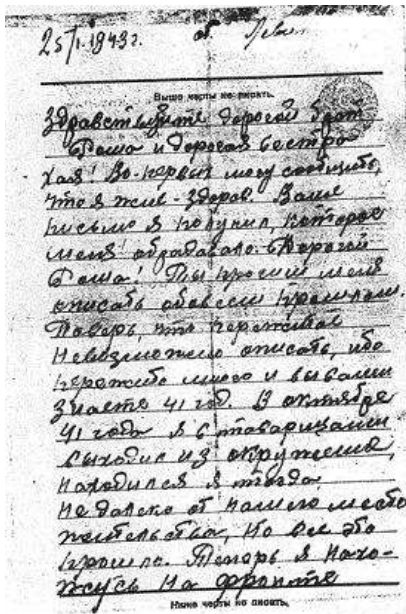 25/I-1943 г.
Выше черты не писать.
Здравствуйте дорогой брат
Рома и дорогая сестра
Хая! Во-первых могу сообщить,
что я жив-здоров. Ваше
письмо я получил, которое
меня обрадавало. Дорогой
Рома! Ты просиш меня
описать обовсем прошлом.
Поверь, что пережитое
невозможно описать, ибо
пережито много и вы сами
знаете 41 год. В октябре
41 года я с товарищами
выходил из окружения,
находился я тогда
не далеко от нашего место
жительства, но все это
прошло. Теперь я нахо-
жусь на фронте
Ниже черты не писать.